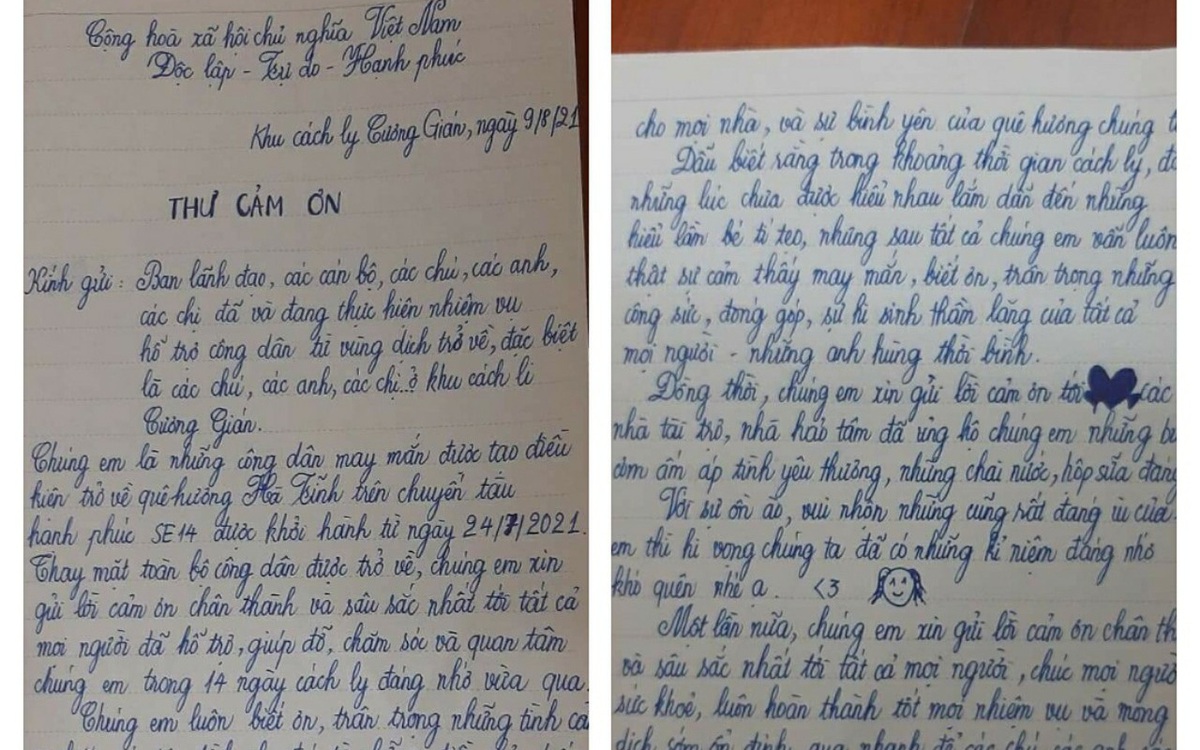 Cộng hoà xã hội chủ nghĩa Việt Nam
Độc lập - Tự do - Hạnh phúc
Khu cách ly Cương Gián, ngày 9/8/21
THƯ CẢM ƠN
Kính gửi: Ban lãnh đạo, các cán bộ, các chú, các anh,
các chị đã và đang thực hiện nhiệm vụ
hỗ trợ công dân từ vùng dịch trở về, đặc biệt
là các chú, các anh, các chị ở khu cách li
Cương Gián.
Chúng em là những công dân may mắn được tạo điều
kiện trở về quê hương Hà Tĩnh trên chuyến tàu
hạnh phúc SE14 được khởi hành từ ngày 24/7/2021.
Thay mặt toàn bộ công dân được trở về, chúng em xin
gửi lời cảm ơn chân thành và sâu sắc nhất tới tất cả
mọi người đã hỗ trợ, giúp đỡ, chăm sóc và quan tâm
chúng em trong 14 ngày cách ly đáng nhớ vừa qua.
Chúng em luôn biết ơn, trân trọng những tình
cho mọi nhà, và sự bình yên của quê hương chúng
Dẫu biết rằng trong khoảng thời gian cách ly,
những lúc chưa được hiểu nhau lắm dẫn đến những
hiểu lầm bé tí teo, nhưng sau tất cả chúng em vẫn luôn
thật sự cảm thấy may mắn, biết ơn, trân trọng những
công sức, đóng góp, sự hi sinh thầm lặng của tất cả
mọi người - những anh hùng thời bình.
Đồng thời, chúng em xin gửi lời cảm ơn tới các
nhà tài trợ, nhà hảo tâm đã ủng hộ chúng em những
cơm ấm áp tình yêu thương, những chai nước, hộp sữa đáng
Với sự ồn ào, vui nhộn nhưng cũng rất đáng iu của
em thì hi vọng chúng ta đã có những kỉ niệm đáng nhớ
khó quên nhé ạ. <3
Một lần nữa, chúng em xin gửi lời cảm ơn chân
và sâu sắc nhất tới tất cả mọi người, chúc mọi người
sức khoẻ, luôn hoàn thành tốt mọi nhiệm vụ và mong
dịch sớm ổn định